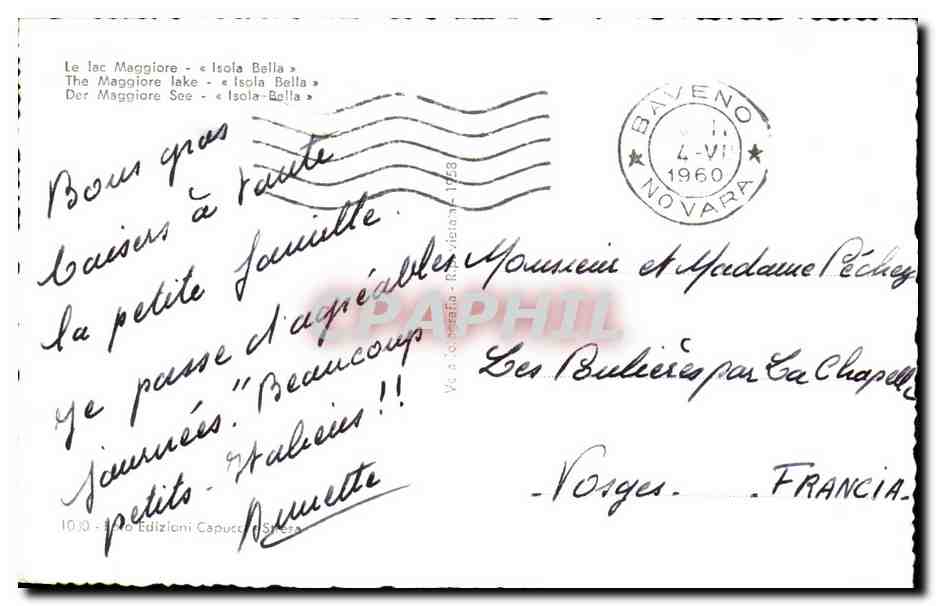 Le lac Maggiore - « Isola Bella »
The Maggiore lake - « Isola Bella »
Der Maggiore See - « Isola Bella »
BAVENO
4-VI
1960
NOVARA
Bons gros
baisers à toute
la petite famille.
Je passe d'agréables
journées. "Beaucoup
petits - Italiens !!
Annette
Monsieur et Madame Péchey
Les Bulières par La Chapelle
- Vosges - - FRANCIA -
Vera Fotografia - Rip. vietata - 1958
CPAPHIL
Foto Edizioni Capucci - Stresa